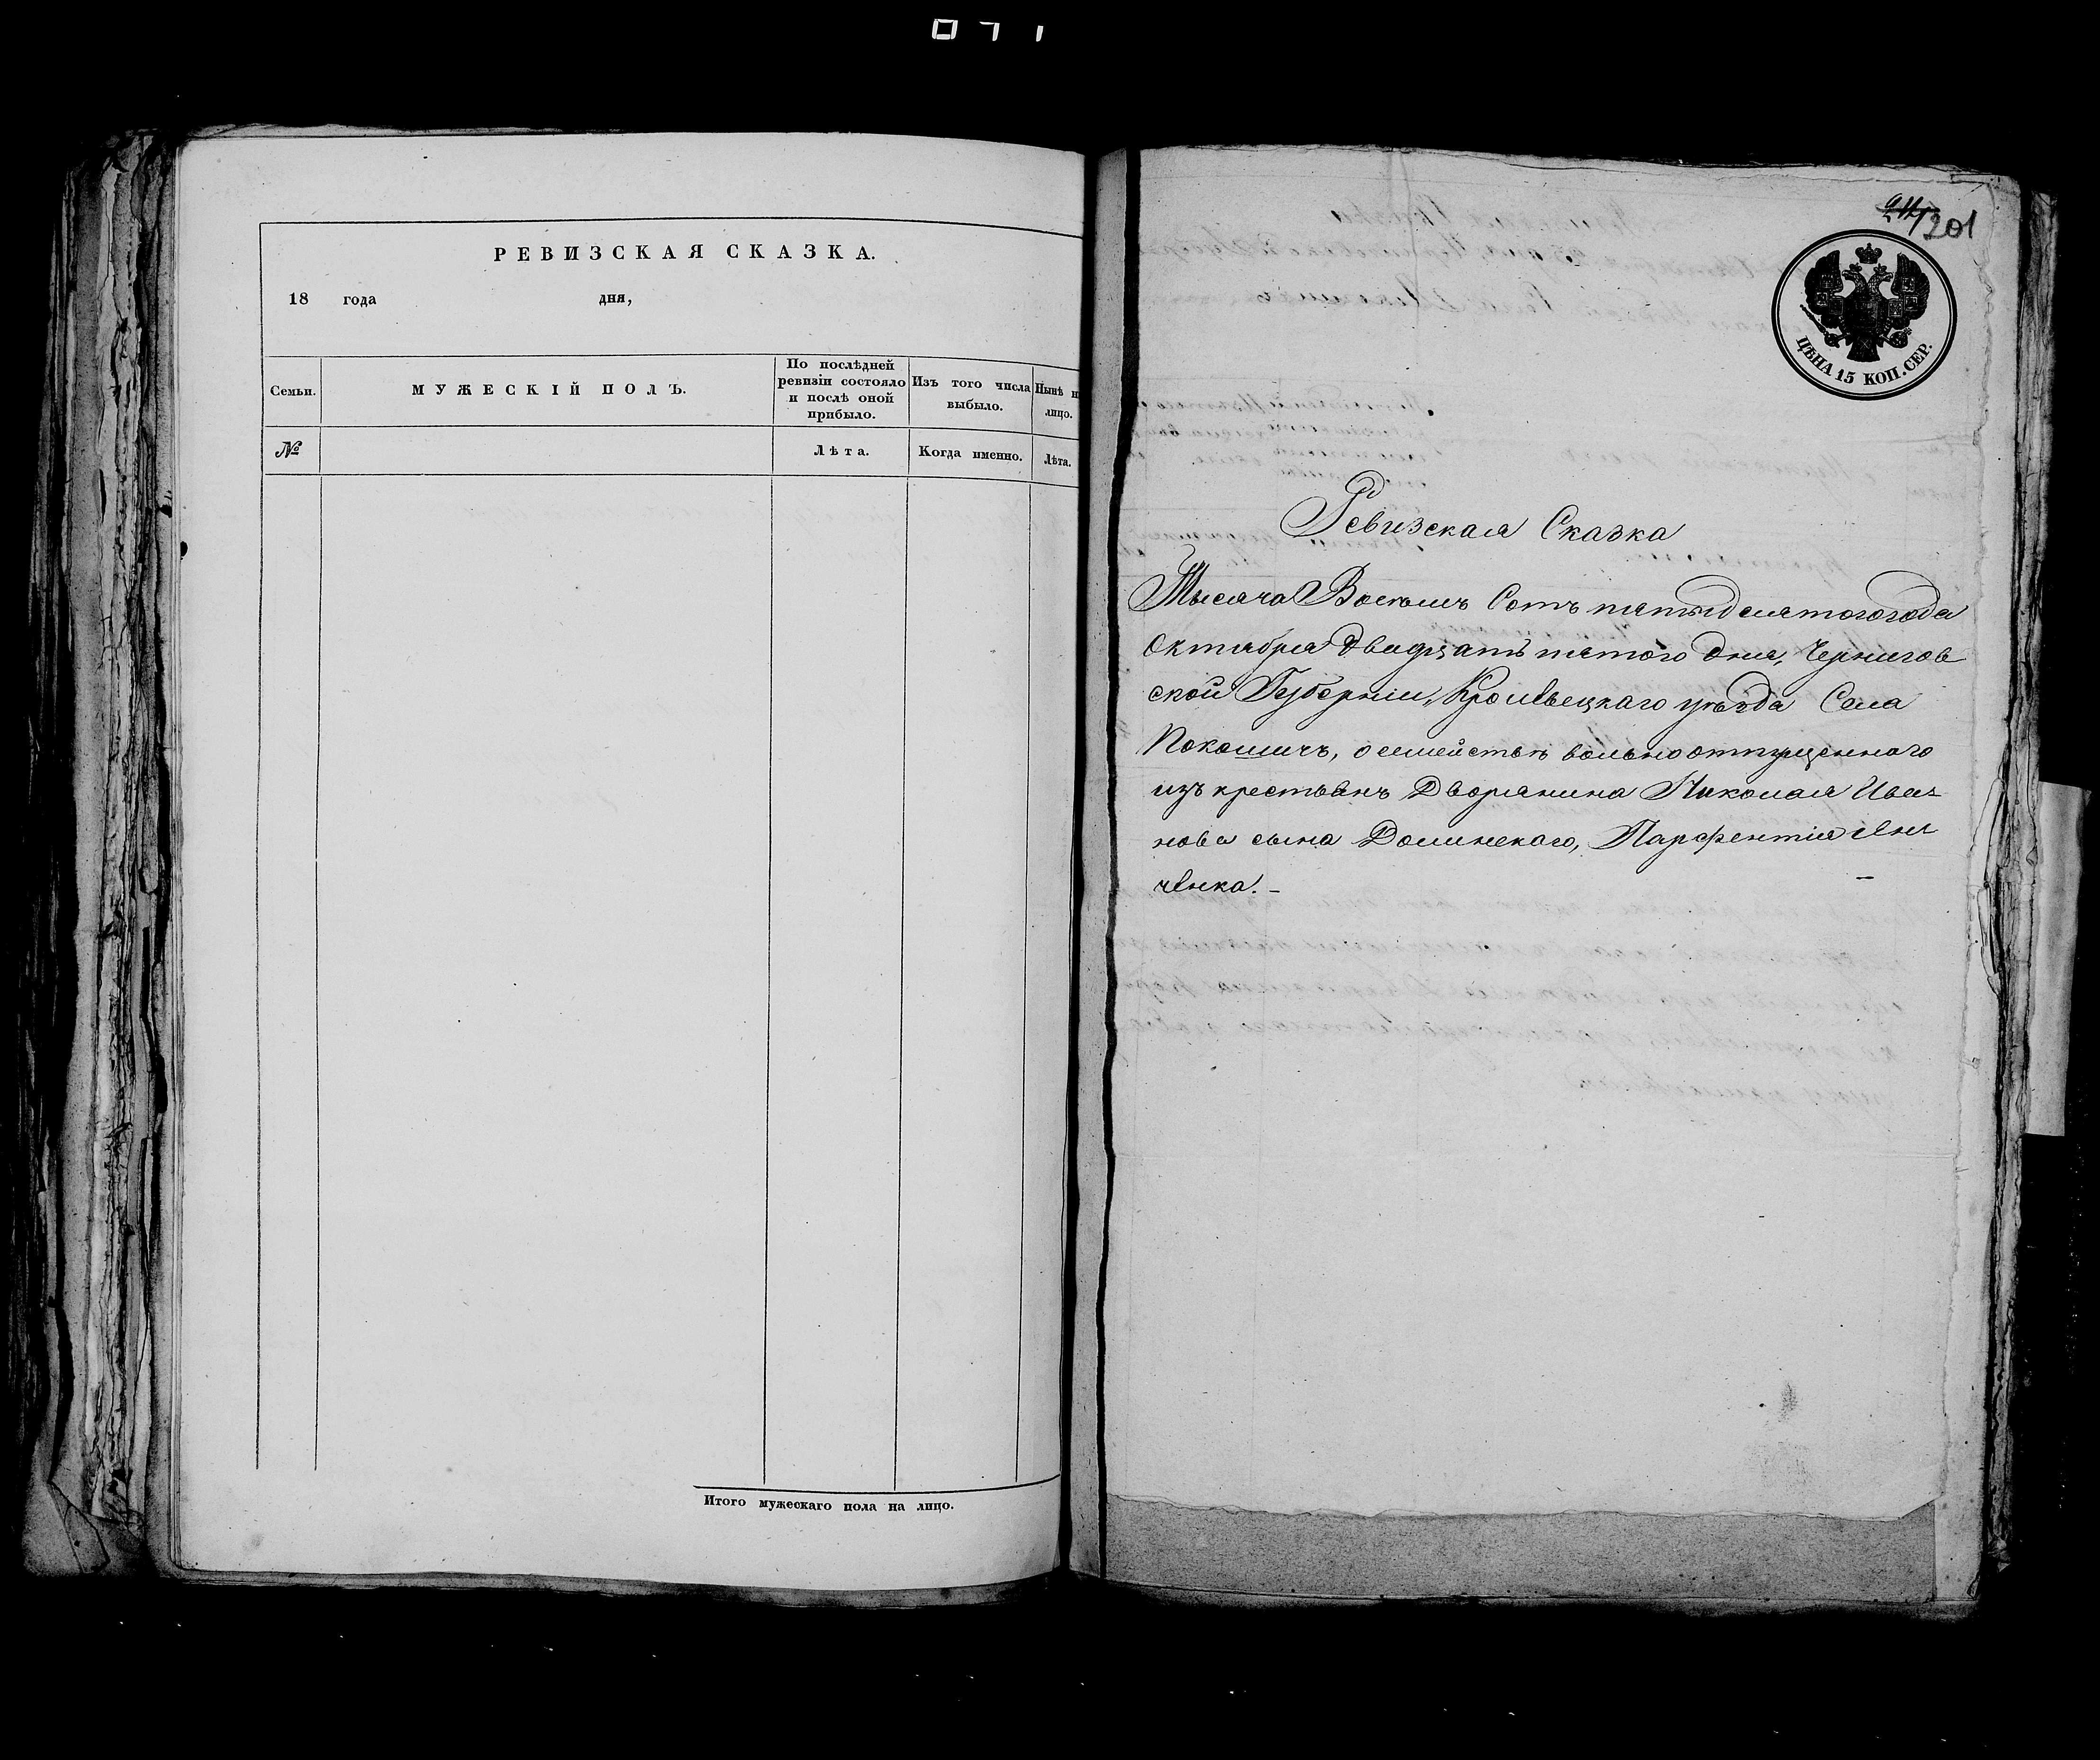 071
РЕВИЗСКАЯ СКАЗКА.
18 года дня,
Семьи.
МУЖЕСКІЙ ПОЛЪ.
По послѣдней
ревизіи состояло
и послѣ оной
прибыло.
Изъ того числа
выбыло.
Нынѣ н
лицо.
№
Лѣта.
Когда именно.
Лѣта.
Итого мужескаго пола на лицо.
201
ЦѢНА 15 КОП. СЕР.
Ревизская Сказка
Тысяча Восемь Сотъ пятьдесятого года
Октября двадцать пятого дня, Чернигов
ской Губерніи, Кролевецкаго уѣзда Села
Покошичъ, о семействѣ вольноотпущенного
изъ крестьянъ Дворянина Николая Ива-
нова сына Долинскаго, Парфентія
ченка. -